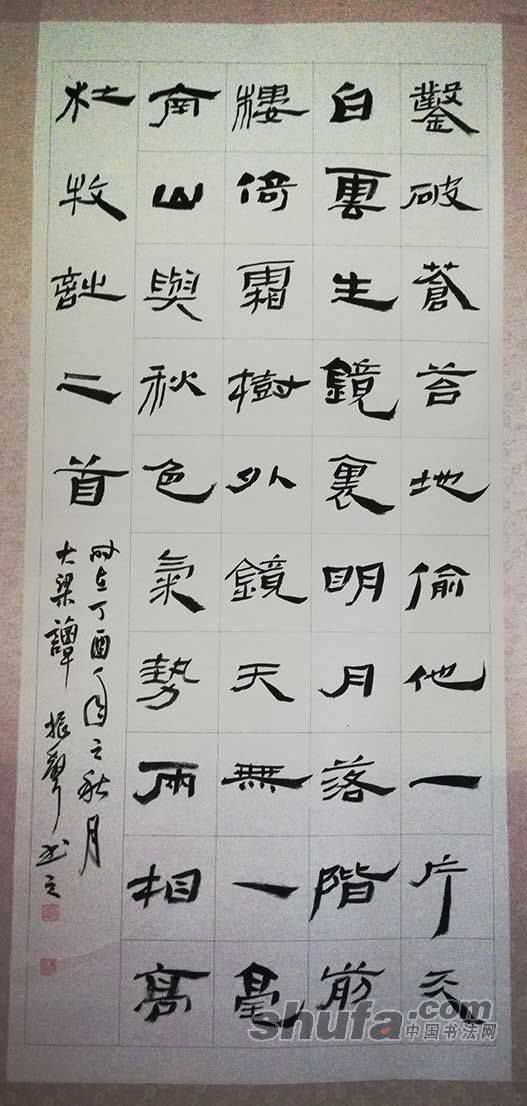 鑿破蒼苔地偷他一片天
白雲生鏡裏明月落階前
樓倚霜樹外鏡天無一毫
南山與秋色氣勢兩相高
杜牧詩二首
時在丁酉年之秋月
大梁譚振聲书之
shufa.com
中国书法网